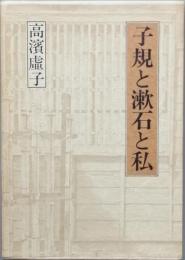 子規と漱石と私
高濱虚子